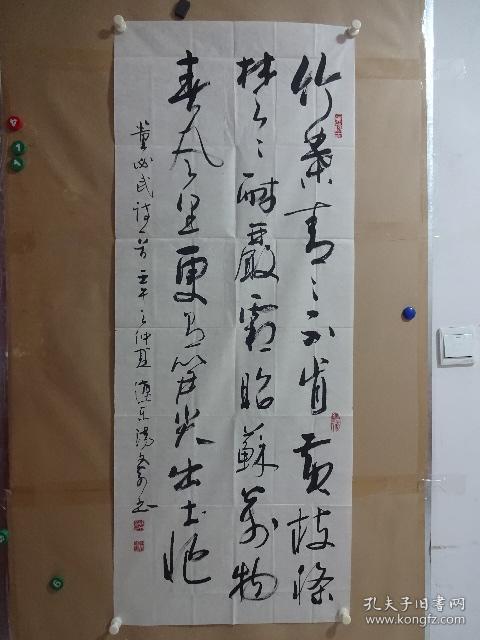 竹葉青々不肯黄枝條
楚々耐嚴霜昭蘇萬物
春风里更有笋尖出土忙
董必武诗一首 壬午之仲夏 陽文 书
孔夫子旧书网
www.kongfz.com